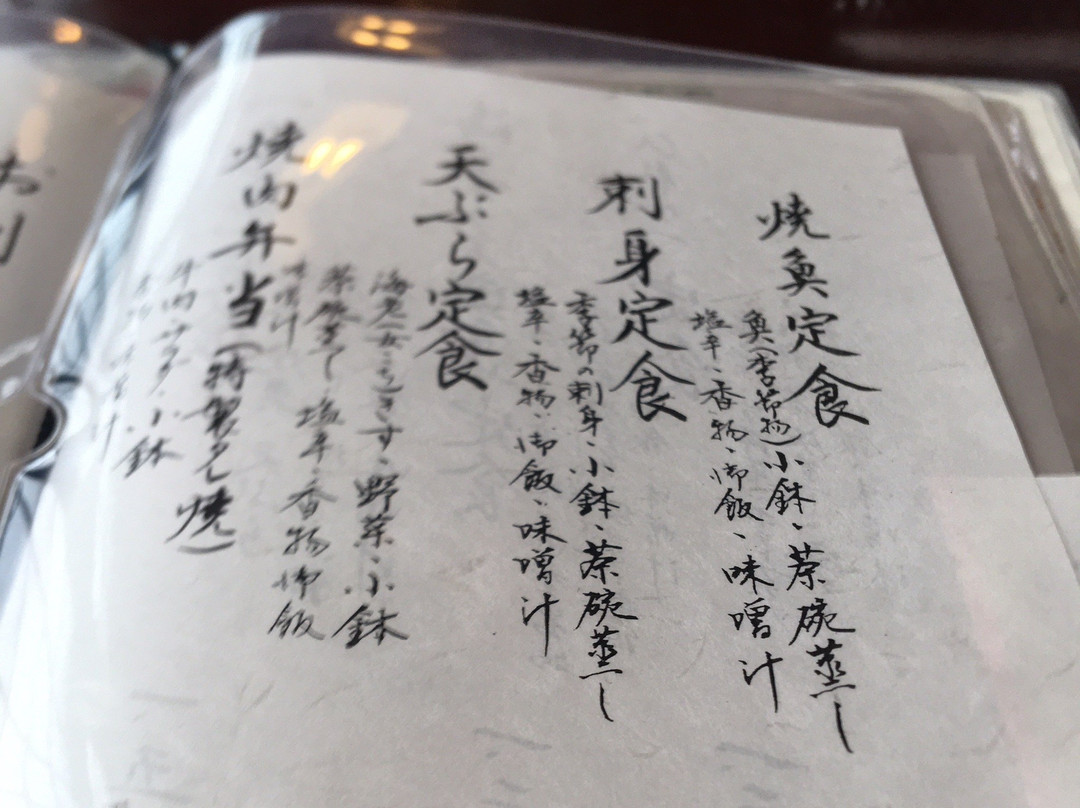 焼魚定食
魚(季節物)小鉢、茶碗蒸し
塩辛、香物、御飯、味噌汁
刺身定食
季節の刺身、小鉢、茶碗蒸し
塩辛、香物、御飯、味噌汁
天ぷら定食
海老(女の子)きす、野菜、小鉢
茶碗蒸し、塩辛、香物御飯
味噌汁
焼肉弁当(特製タレ焼)
牛肉サラダ、小鉢